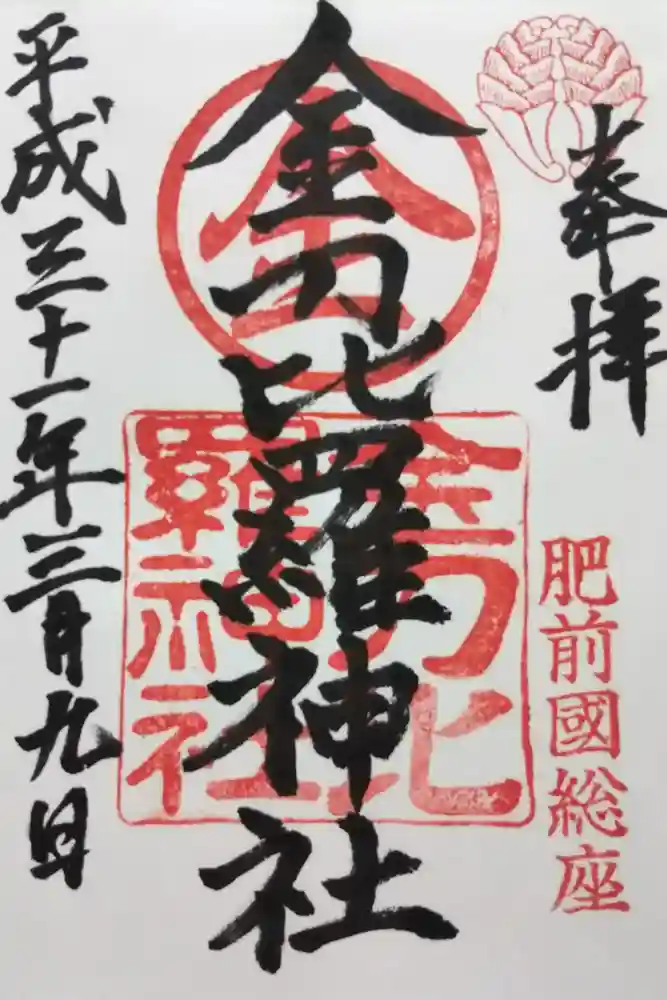 奉拝
肥前國総座
金刀比羅神社
金
金刀比羅神社
平成三十一年三月九日